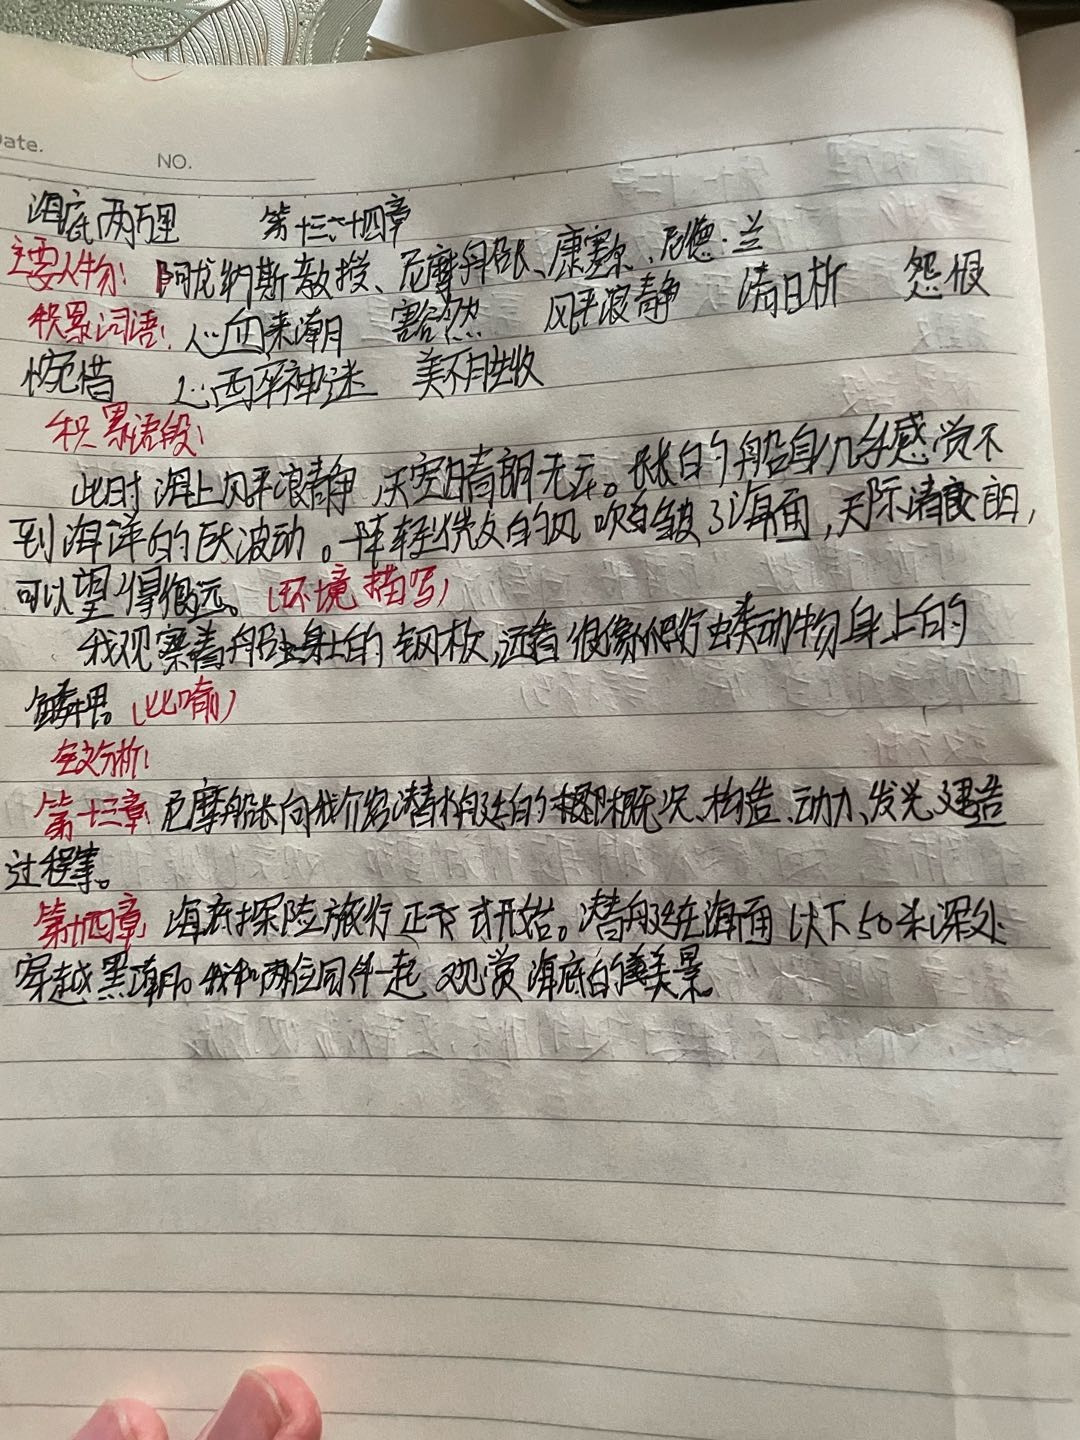 Date.
NO.
海底两万里 第十三、十四章
主要人物：阿龙纳斯教授、尼摩船长、康塞尔、尼德·兰
积累词语：心血来潮 豁然 风平浪静 清晰 怨恨
惋惜 心酉卒神迷 美不胜收
积累语段：
此时海上风平浪静，天空晴朗无云。长长的船身几乎感觉不
到海洋的巨大波动。一阵轻微的风吹皱了海面，天际清朗，
可以望得很远。（环境描写）
我观察着船身上的钢板，远看很像爬行类动物身上的
鳞甲。（比喻）
全文分析：
第十三章 尼摩船长向我介绍潜水艇的概况、构造、动力、发光、建造
过程等。
第十四章 海底探险旅行正式开始。潜艇在海面以下50米深处
穿越黑潮。我和两位同伴一起观赏海底的美景。